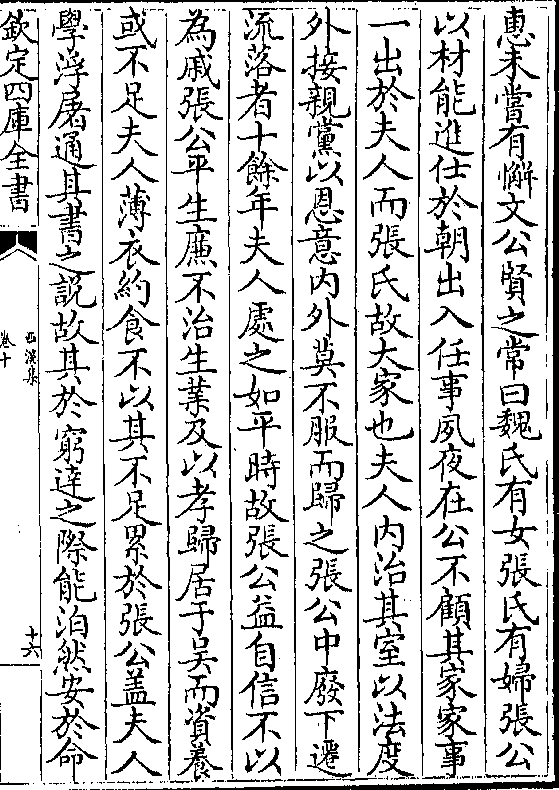 惠未嘗有懈文公賢之常曰魏氏有女張氏有婦張公
以材能進仕於朝出入任事夙夜在公不顧其家家事
一出於夫人而張氏故大家也夫人内治其室以法度
外接親黨以恩意内外莫不服而歸之張公中廢下遷
流落者十餘年夫人處之如平時故張公益自信不以
為戚張公平生廉不治生業及以孝歸居于吴而資養
或不足夫人薄衣約食不以其不足累於張公盖夫人
學浮屠通其書之説故其於窮達之際能泊然安於命
欽定四庫全書
西溪集
卷十
十六